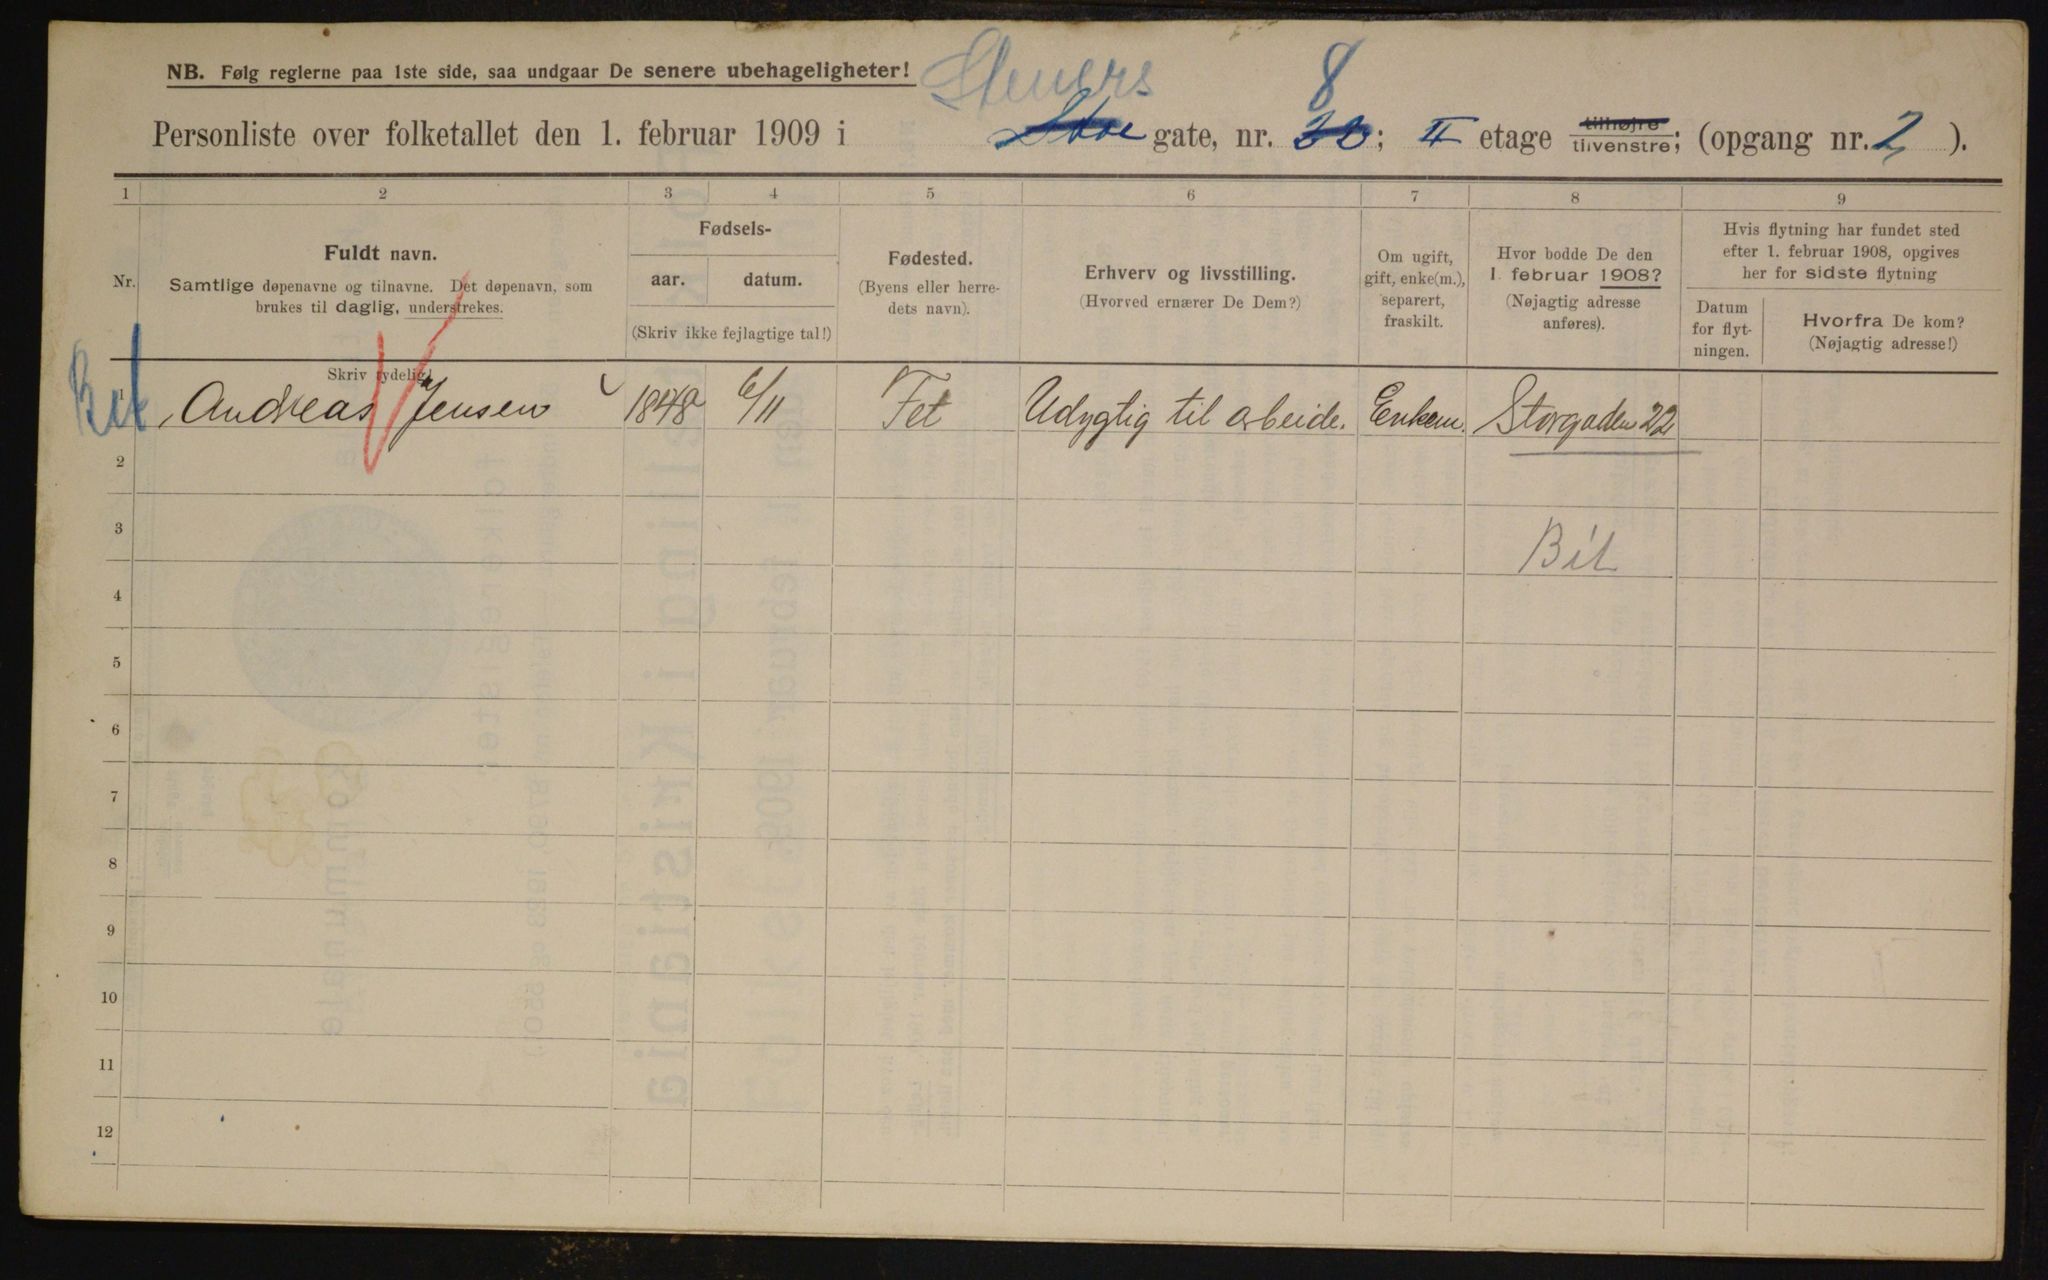 NB. Følg reglerne paa 1ste side, saa undgaar De senere ubehageligheter!
Steners 8
Personliste over folketallet den 1. februar 1909 i Stor gate, nr. 20; II etage tilhøjre tilvenstre; (opgang nr. 2).
1 2 3 4 5 6 7 8 9
Nr.
Fuldt navn.
Samtlige døpenavne og tilnavne. Det døpenavn, som
brukes til daglig, understrekes.
Skriv tydelig!
Fødsels-
aar. datum.
(Skriv ikke fejlagtige tal!)
Fødested.
(Byens eller herre-
dets navn).
Erhverv og livsstilling.
(Hvorved ernærer De Dem?)
Om ugift,
gift, enke(m.),
separert,
fraskilt.
Hvor bodde De den
1. februar 1908?
(Nøjagtig adresse
anføres).
Hvis flytning har fundet sted
efter 1. februar 1908, opgives
her for sidste flytning
Datum
for flyt-
ningen.
Hvorfra De kom?
(Nøjagtig adresse!)
Bit 1 Andreas Jensen 1848 6/11 Fet Udygtig til arbeide. Enkem. Storgaden 22
2
3 Bit
4
5
6
7
8
9
10
11
12